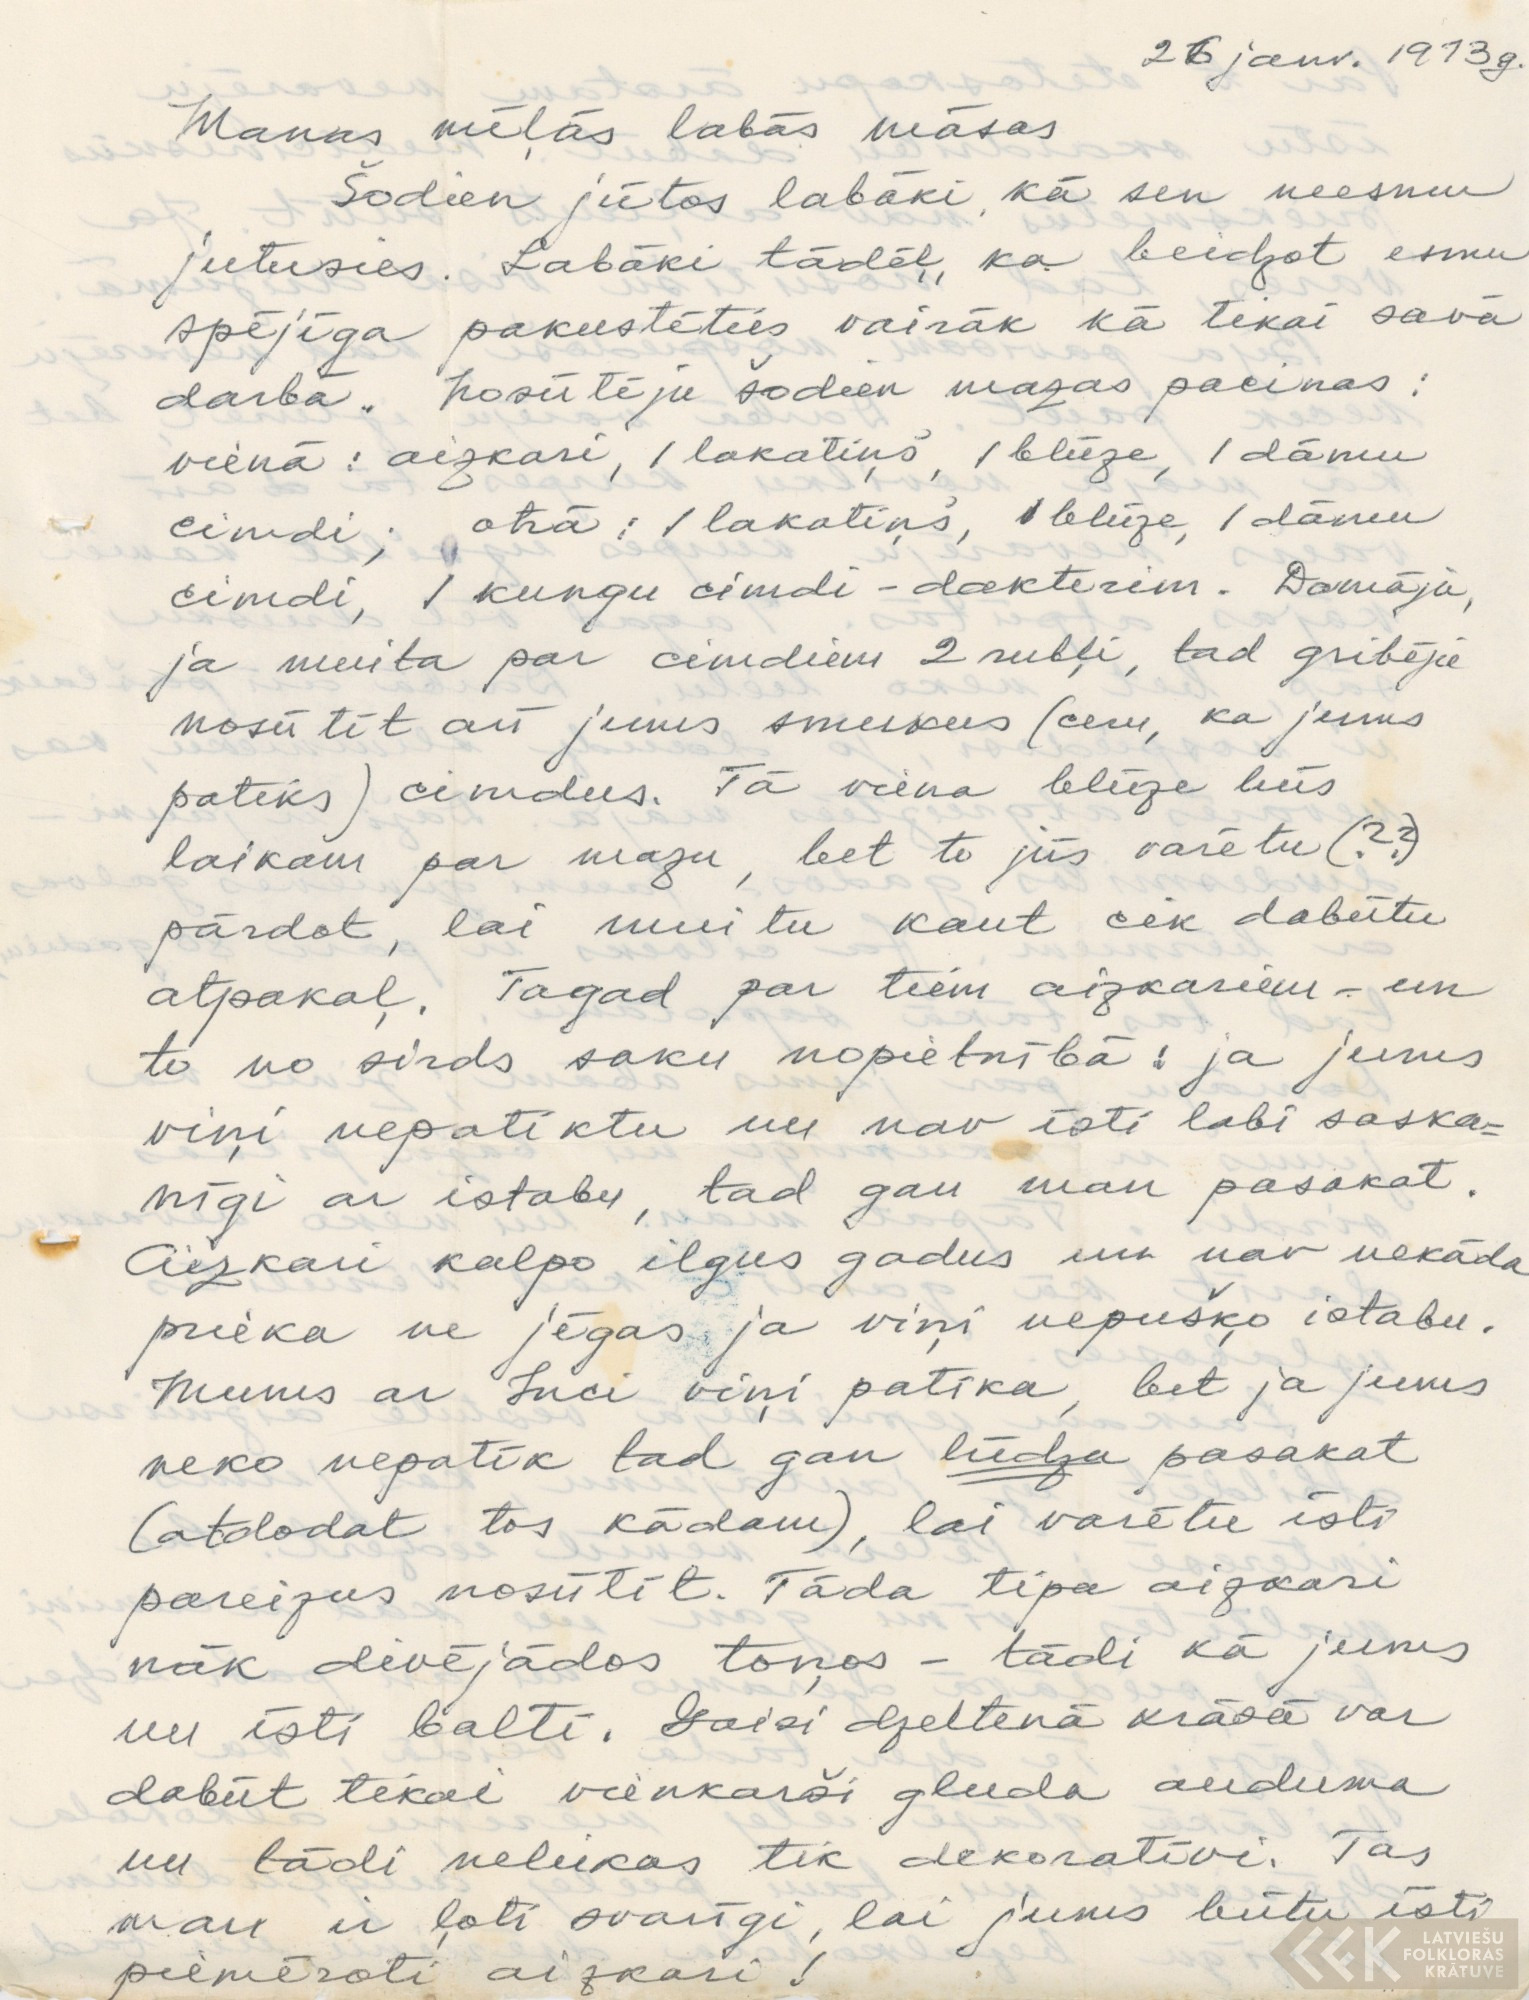 26 janv. 1973g.
Manas mīļās labās māsas
Šodien jūtos labāki, kā sen neesmu
jutusies. Labāki tādēļ, ka beidzot esmu
spējīga pakustēties vairāk kā tikai savā
darbā. Nosūtēju šodien mazas paciņas:
vienā: aizkari, 1 lakatiņš, 1 blūze, 1 dāmu
cimdi; otrā: 1 lakatiņš, 1 blūze, 1 dāmu
cimdi, 1 kungu cimdi - dakterim. Domāju,
ja muita par cimdiem 2 rubļi, tad gribēju
nosūtīt arī jums smukus (ceru, ka jums
patiks) cimdus. Tā viena blūze būs
laikam par mazu, bet to jūs varētu (??)
pārdot, lai muitu kaut cik dabūtu
atpakaļ. Tagad par tiem aizkariem - un
to no sirds saku nopietnībā: ja jums
viņi nepatiktu un nav īsti labi saska-
nīgi ar istabu, tad gan man pasakat.
Aizkari kalpo ilgus gadus un nav nekāda
prieka ne jēgas ja viņi nepušķo istabu.
Mums ar Inci viņi patika, bet ja jums
neko nepatīk tad gan lūdzu pasakat
(atdodat tos kādam), lai varētu īsti
pareizus nosūtīt. Tāda tipa aizkari
nāk divējādos toņos - tādi kā jums
un īsti balti. Gaisi dzeltenā krāsā var
dabūt tikai vienkarši gluda auduma
un tādi neliekas tik dekoratīvi. Tas
man ir ļoti svarīgi, lai jums būtu īsti
piemēroti aizkari!
LATVIEŠU
FOLKLORAS
KRĀTUVE